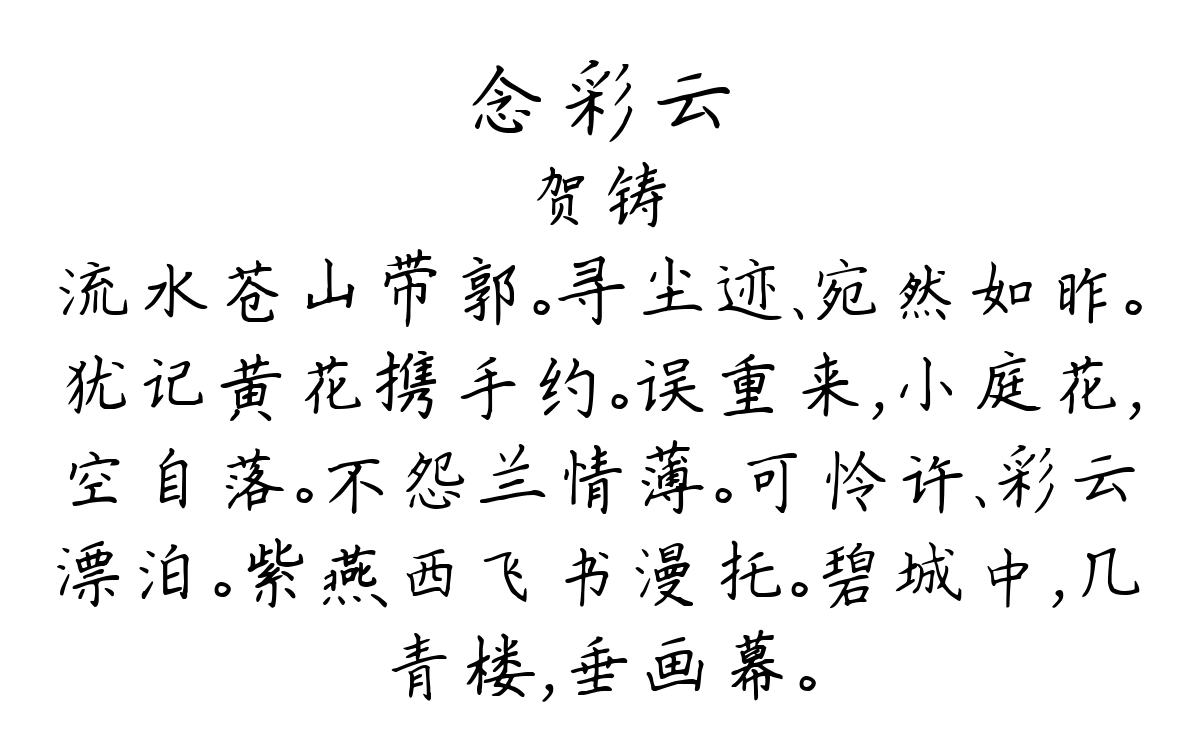 念彩云
贺铸
流水苍山带郭。寻尘迹、宛然如昨。
犹记黄花携手约。误重来,小庭花,
空自落。不怨兰情薄。可怜许、彩云
漂泊。紫燕西飞书漫托。碧城中,几
青楼,垂画幕。